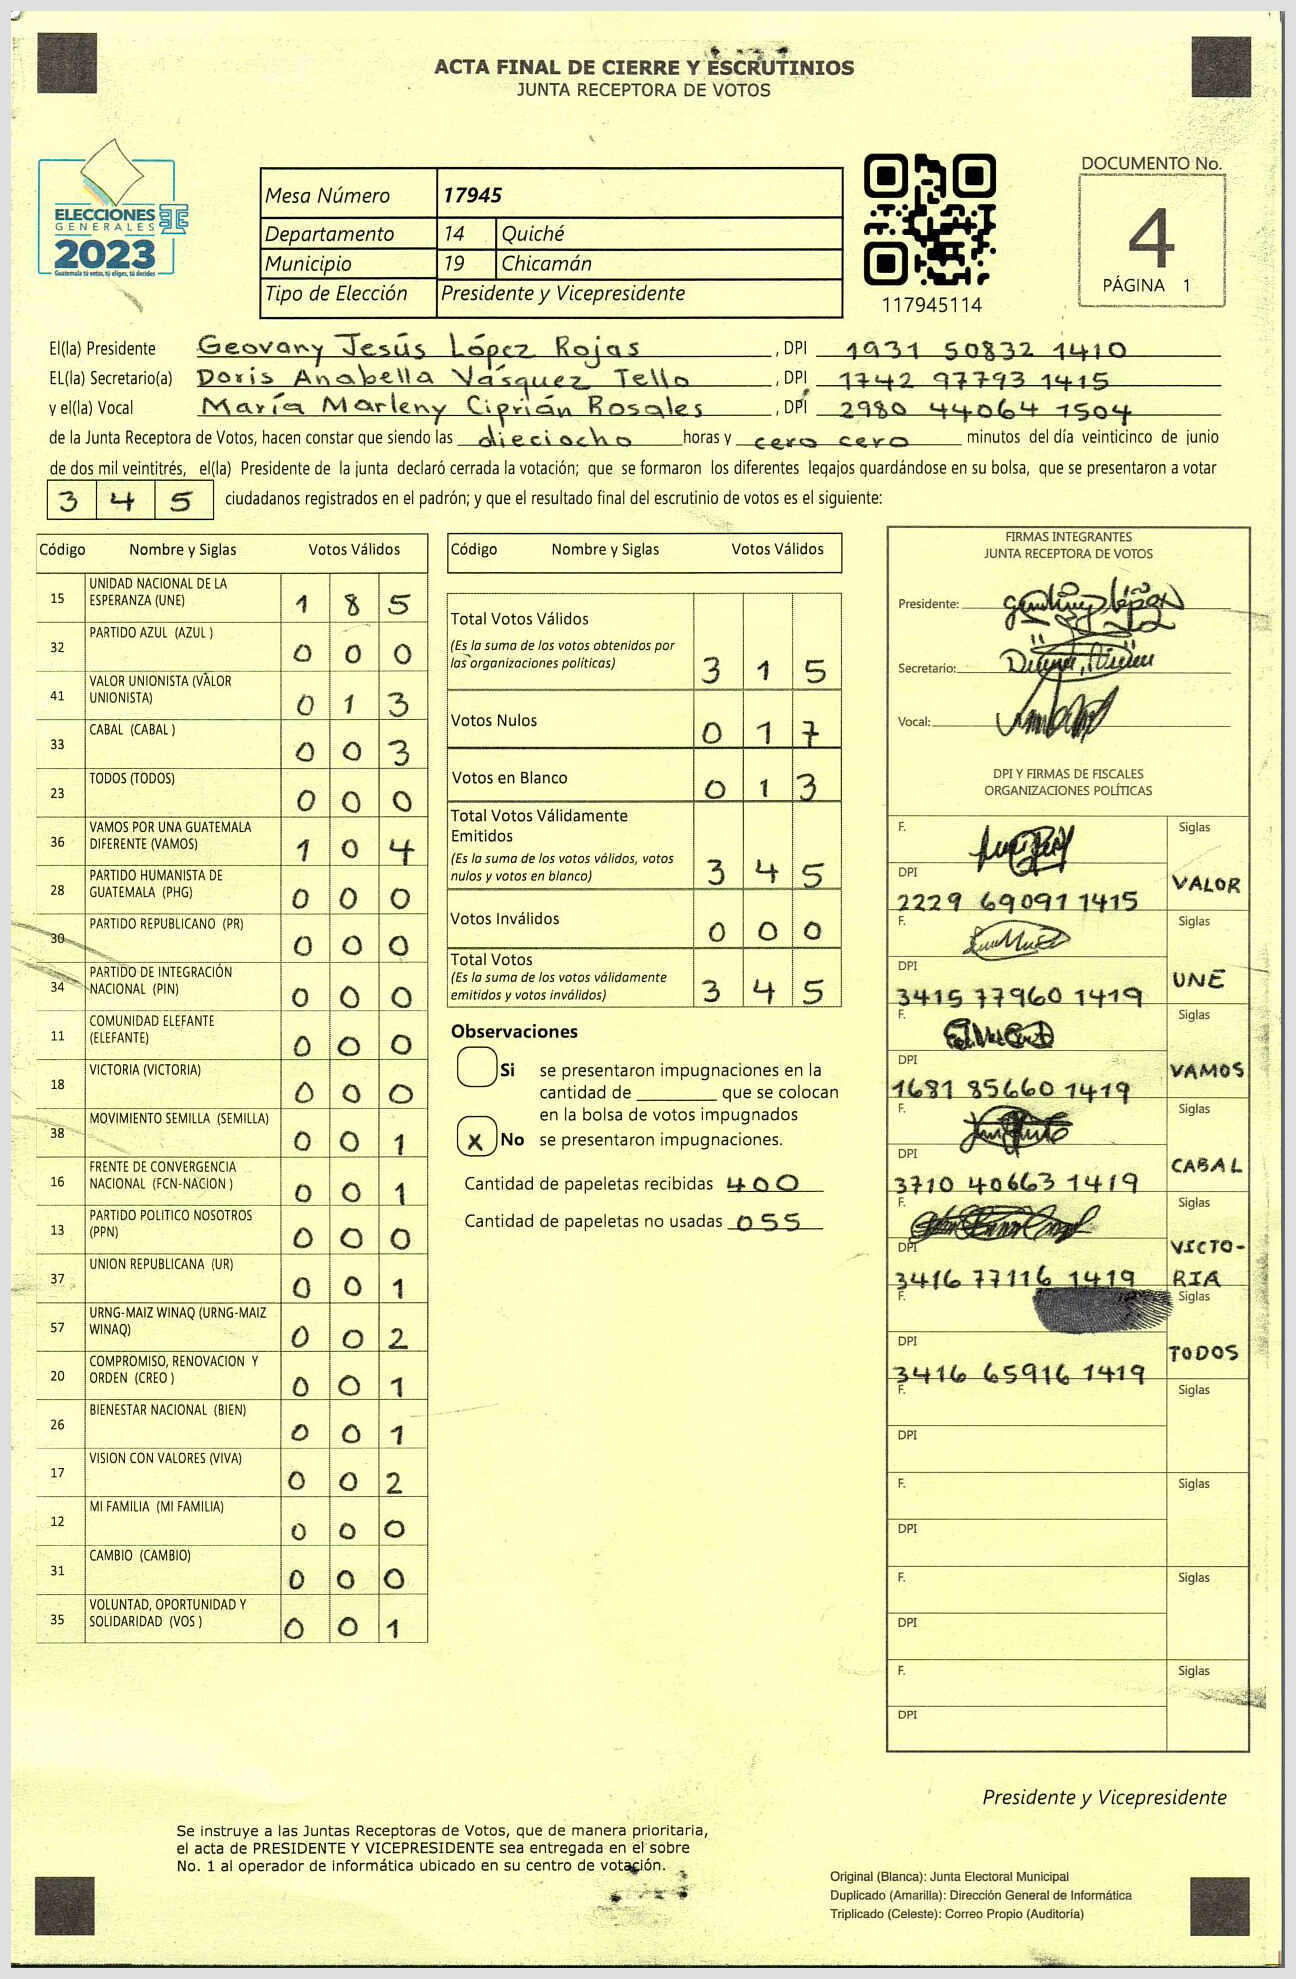 ACTA FINAL DE CIERRE Y ESCRUTINIOS
JUNTA RECEPTORA DE VOTOS
ELECCIONES
GENERALES
2023
Guatemala tú votas, tú eliges, tú decides
Mesa Número 17945
Departamento 14 Quiché
Municipio 19 Chicamán
Tipo de Elección Presidente y Vicepresidente
117945114
DOCUMENTO No.
4
PÁGINA 1
El(la) Presidente Geovany Jesús López Rojas, DPI 1931 50832 1410
EL(la) Secretario(a) Doris Anabella Vásquez Tello, DPI 1742 97793 1415
y el(la) Vocal María Marleny Ciprián Rosales, DPI 2980 44064 1504
de la Junta Receptora de Votos, hacen constar que siendo las dieciocho horas y cero cero minutos del día veinticinco de junio
de dos mil veintitrés, el(la) Presidente de la junta declaró cerrada la votación; que se formaron los diferentes legajos guardándose en su bolsa, que se presentaron a votar
3 4 5 ciudadanos registrados en el padrón; y que el resultado final del escrutinio de votos es el siguiente:
Código Nombre y Siglas Votos Válidos
15 UNIDAD NACIONAL DE LA
ESPERANZA (UNE) 1 8 5
32 PARTIDO AZUL (AZUL ) 0 0 0
41 VALOR UNIONISTA (VALOR
UNIONISTA) 0 1 3
33 CABAL (CABAL ) 0 0 3
23 TODOS (TODOS) 0 0 0
36 VAMOS POR UNA GUATEMALA
DIFERENTE (VAMOS) 1 0 4
28 PARTIDO HUMANISTA DE
GUATEMALA (PHG) 0 0 0
30 PARTIDO REPUBLICANO (PR) 0 0 0
34 PARTIDO DE INTEGRACIÓN
NACIONAL (PIN) 0 0 0
11 COMUNIDAD ELEFANTE
(ELEFANTE) 0 0 0
18 VICTORIA (VICTORIA) 0 0 0
38 MOVIMIENTO SEMILLA (SEMILLA) 0 0 1
16 FRENTE DE CONVERGENCIA
NACIONAL (FCN-NACION ) 0 0 1
13 PARTIDO POLITICO NOSOTROS
(PPN) 0 0 0
37 UNION REPUBLICANA (UR) 0 0 1
57 URNG-MAIZ WINAQ (URNG-MAIZ
WINAQ) 0 0 2
20 COMPROMISO, RENOVACION Y
ORDEN (CREO ) 0 0 1
26 BIENESTAR NACIONAL (BIEN) 0 0 1
17 VISION CON VALORES (VIVA) 0 0 2
12 MI FAMILIA (MI FAMILIA) 0 0 0
31 CAMBIO (CAMBIO) 0 0 0
35 VOLUNTAD, OPORTUNIDAD Y
SOLIDARIDAD (VOS ) 0 0 1
Código Nombre y Siglas Votos Válidos
Total Votos Válidos
(Es la suma de los votos obtenidos por
las organizaciones políticas) 3 1 5
Votos Nulos 0 1 7
Votos en Blanco 0 1 3
Total Votos Válidamente
Emitidos
(Es la suma de los votos válidos, votos
nulos y votos en blanco) 3 4 5
Votos Inválidos 0 0 0
Total Votos
(Es la suma de los votos válidamente
emitidos y votos inválidos) 3 4 5
Observaciones
Si se presentaron impugnaciones en la
cantidad de ________ que se colocan
en la bolsa de votos impugnados
X No se presentaron impugnaciones.
Cantidad de papeletas recibidas 400
Cantidad de papeletas no usadas 055
FIRMAS INTEGRANTES
JUNTA RECEPTORA DE VOTOS
Presidente:
Secretario:
Vocal:
DPI Y FIRMAS DE FISCALES
ORGANIZACIONES POLÍTICAS
F. Siglas
DPI VALOR
2229 69091 1415
F. Siglas
DPI UNE
3415 77960 1419
F. Siglas
DPI VAMOS
1681 85660 1419
F. Siglas
DPI CABAL
3710 40663 1419
F. Siglas
DPI VICTO-
3416 77116 1419 RIA
F. Siglas
DPI TODOS
3416 65916 1419
F. Siglas
DPI
F. Siglas
DPI
F. Siglas
DPI
F. Siglas
DPI
Presidente y Vicepresidente
Se instruye a las Juntas Receptoras de Votos, que de manera prioritaria,
el acta de PRESIDENTE Y VICEPRESIDENTE sea entregada en el sobre
No. 1 al operador de informática ubicado en su centro de votación.
Original (Blanca): Junta Electoral Municipal
Duplicado (Amarilla): Dirección General de Informática
Triplicado (Celeste): Correo Propio (Auditoría)